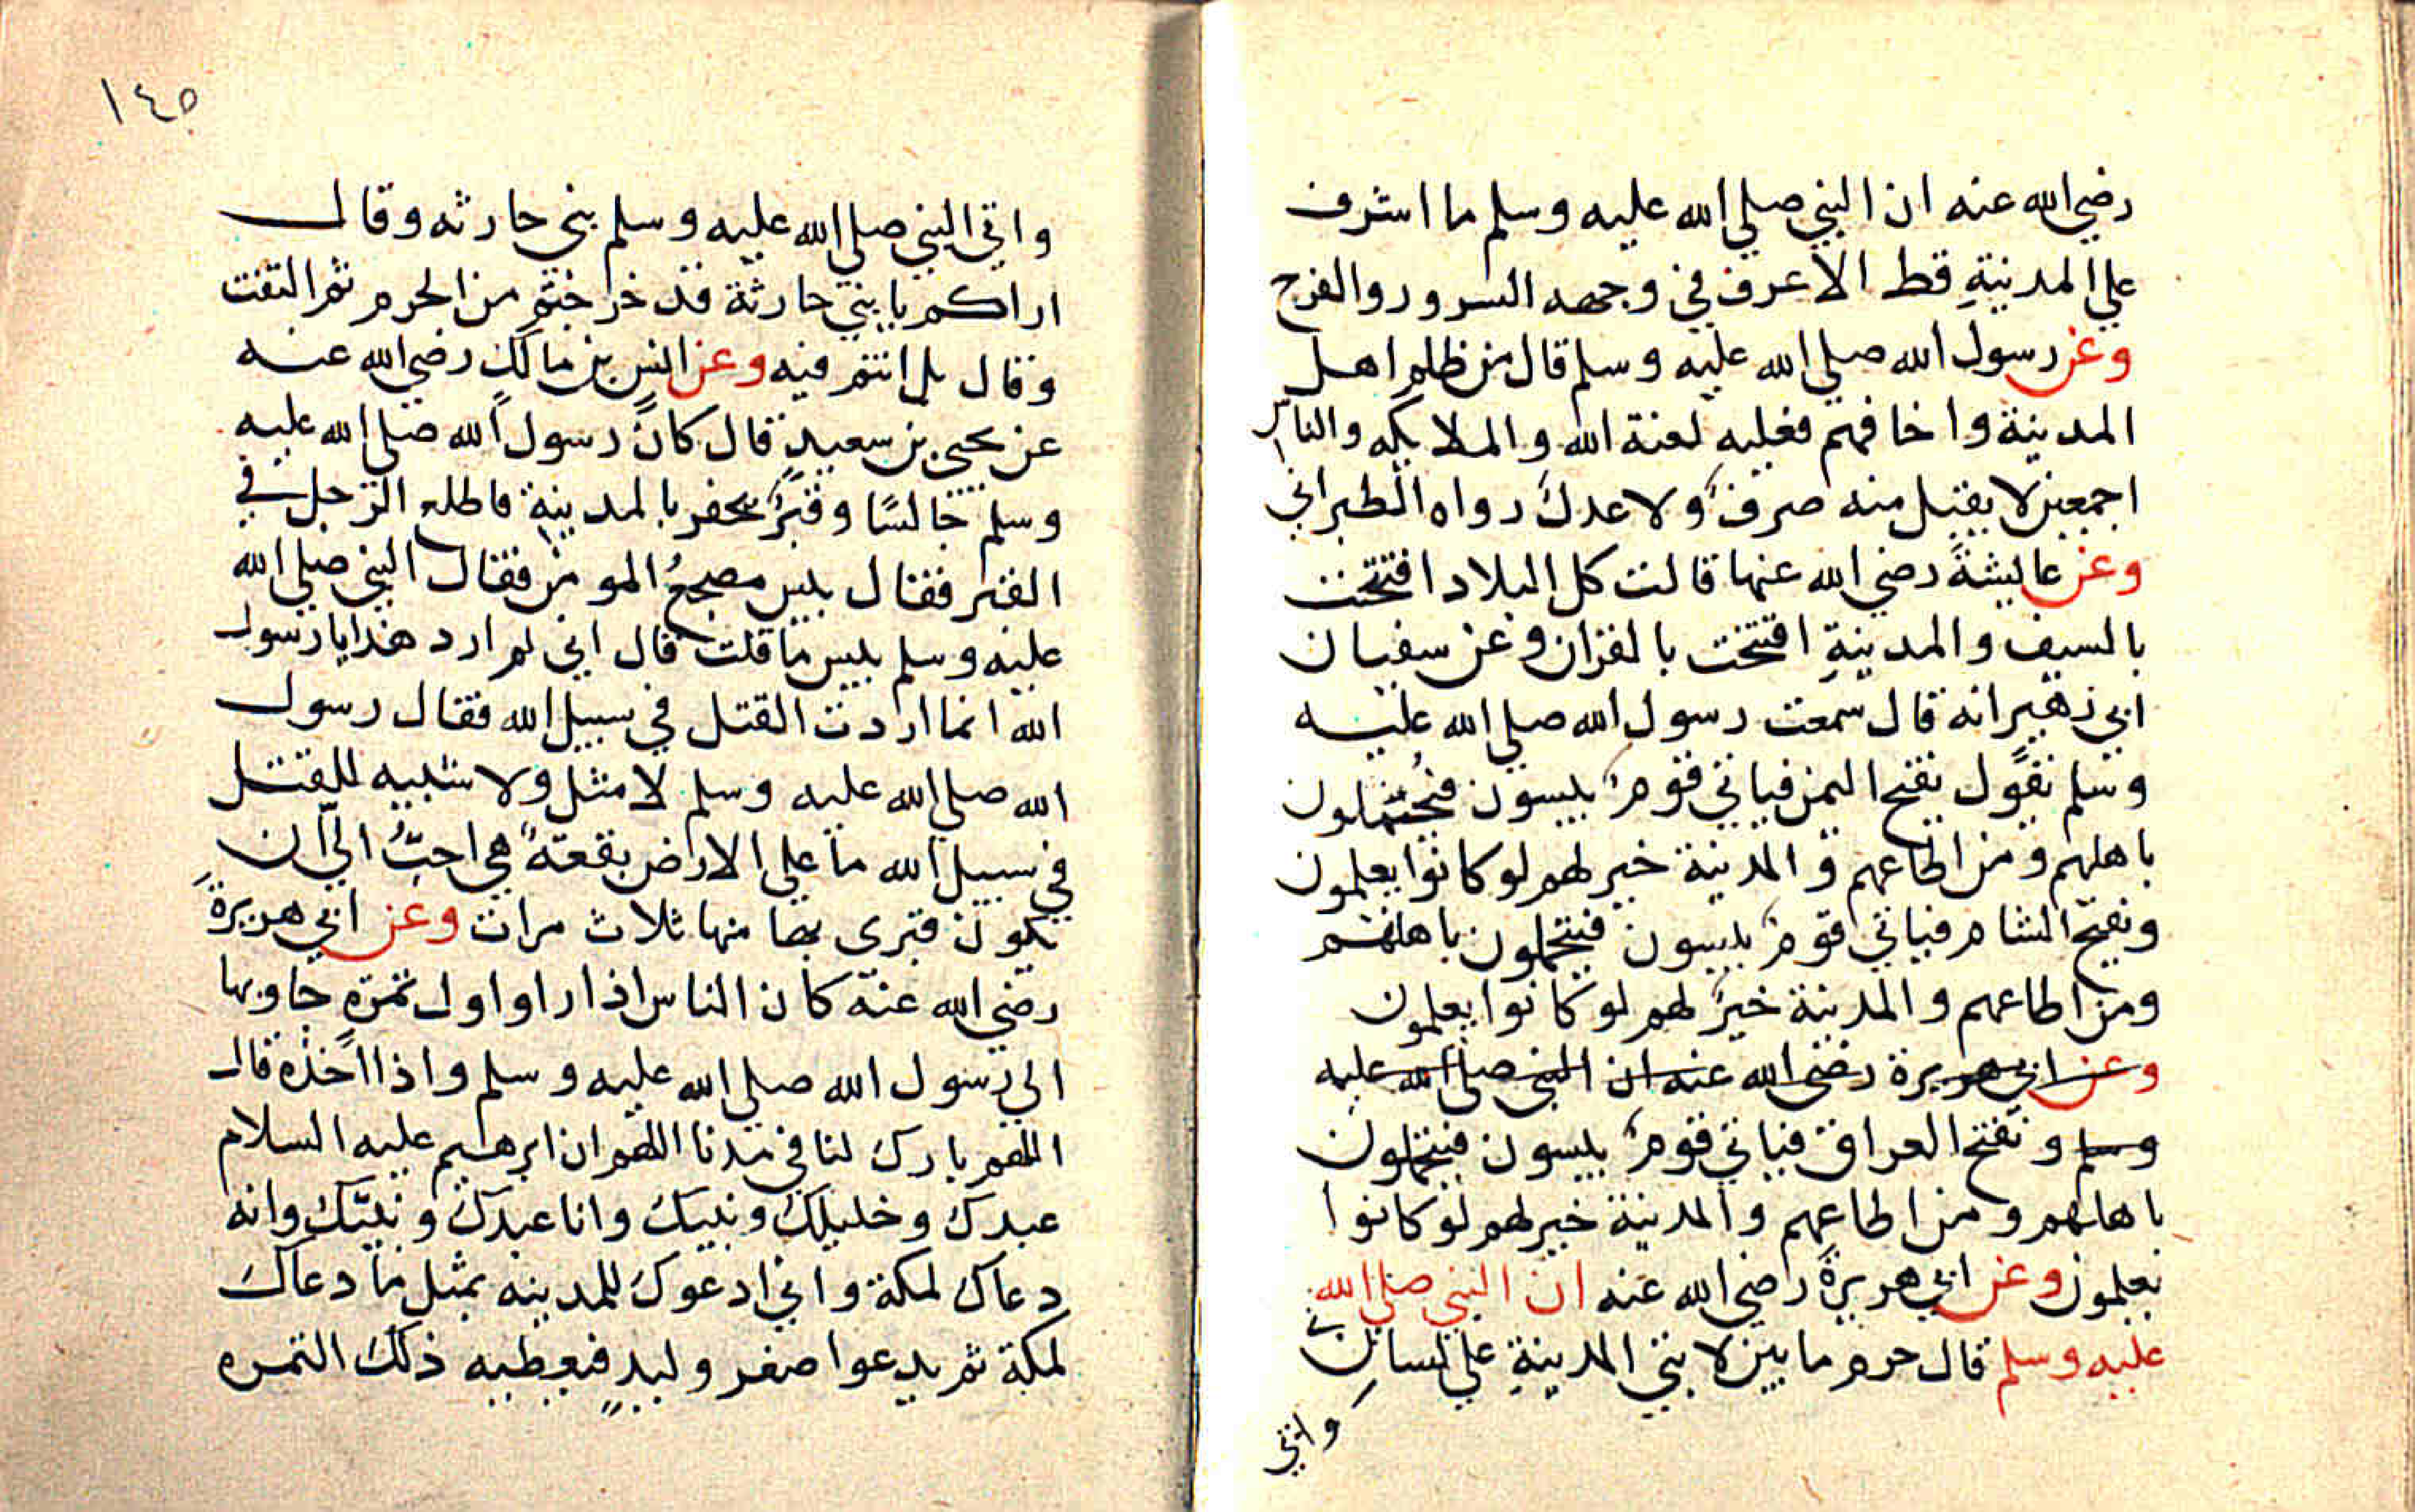 رضي الله عنه ان النبي صلي الله عليه وسلم ما اشرف
علي المدينةِ قط الا عرف في وجهه السرور والفرح
وعن رسول الله صلي الله عليه وسلم قال من ظلم اهل
المدينة واخافهم فعليه لعنة الله والملايكه والناس
اجمعين لا يقبل منه صرف ولا عدل رواه الطبراني
وعن عايشة رضي الله عنها قالت كل البلاد افتتحت
بالسيف والمدينةِ افتتحت بالقران وعن سفيان
ابي زهير انه قال سمعت رسول الله صلي الله عليه
وسلم يقول يفتح اليمن فياتي قوم يبسون فيتحملون
باهلهم ومن اطاعهم والمدينة خير لهم لو كانوا يعلمون
وتفتح الشام فياتي قوم يبسون فيتحملون باهلهم
ومن اطاعهم والمدينة خير لهم لو كانوا يعلمون
وعن ابي هريرة رضي الله عنه ان النبي صلي الله عليه
وسلم وتفتح العراق فياتي قوم يبسون فيتحملون
باهلهم ومن اطاعهم والمدينة خير لهم لو كانوا
يعلمون وعن ابي هريرة رضي الله عنه ان النبي صلي الله
عليه وسلم قال حرم ما بين لابتي المدينةِ علي لساني
واتي
١٤٥
واتي النبي صلي الله عليه وسلم بني حارثه وقال
اراكم يا بني حارثة قد خرجتم من الحرم ثم التفت
وقال بل انتم فيه وعن انس بن مالك رضي الله عنه
عن يحيي بن سعيدٍ قال كان رسول الله صلي الله عليه
وسلم جالسًا وقبر يحفر بالمدينة فاطلع الرجل في
القبر فقال بيس مضجع المومن فقال النبي صلي الله
عليه وسلم بيس ما قلت قال اني لم ارد هذا يا رسول
الله انما اردت القتل في سبيل الله فقال رسول
الله صلي الله عليه وسلم لا مثل ولا شبيه للقتل
في سبيل الله ما علي الارض بقعة هي احبُّ الي ان
تكون قبري بها منها ثلاث مرات وعن ابي هريرة
رضي الله عنه كان الناس اذا راوا اول ثمرة جاوبها
الي رسول الله صلي الله عليه وسلم واذا اخذه قال
اللهم بارك لنا في مدنا اللهم ان ابرهيم عليه السلام
عبدك وخليلك ونبيك وانا عبدك ونبيك وانه
دعاك لمكة واني ادعوك للمدينه بمثل ما دعاك
لمكة ثم يدعوا صغر وليدٍ فيعطيه ذلك التمره